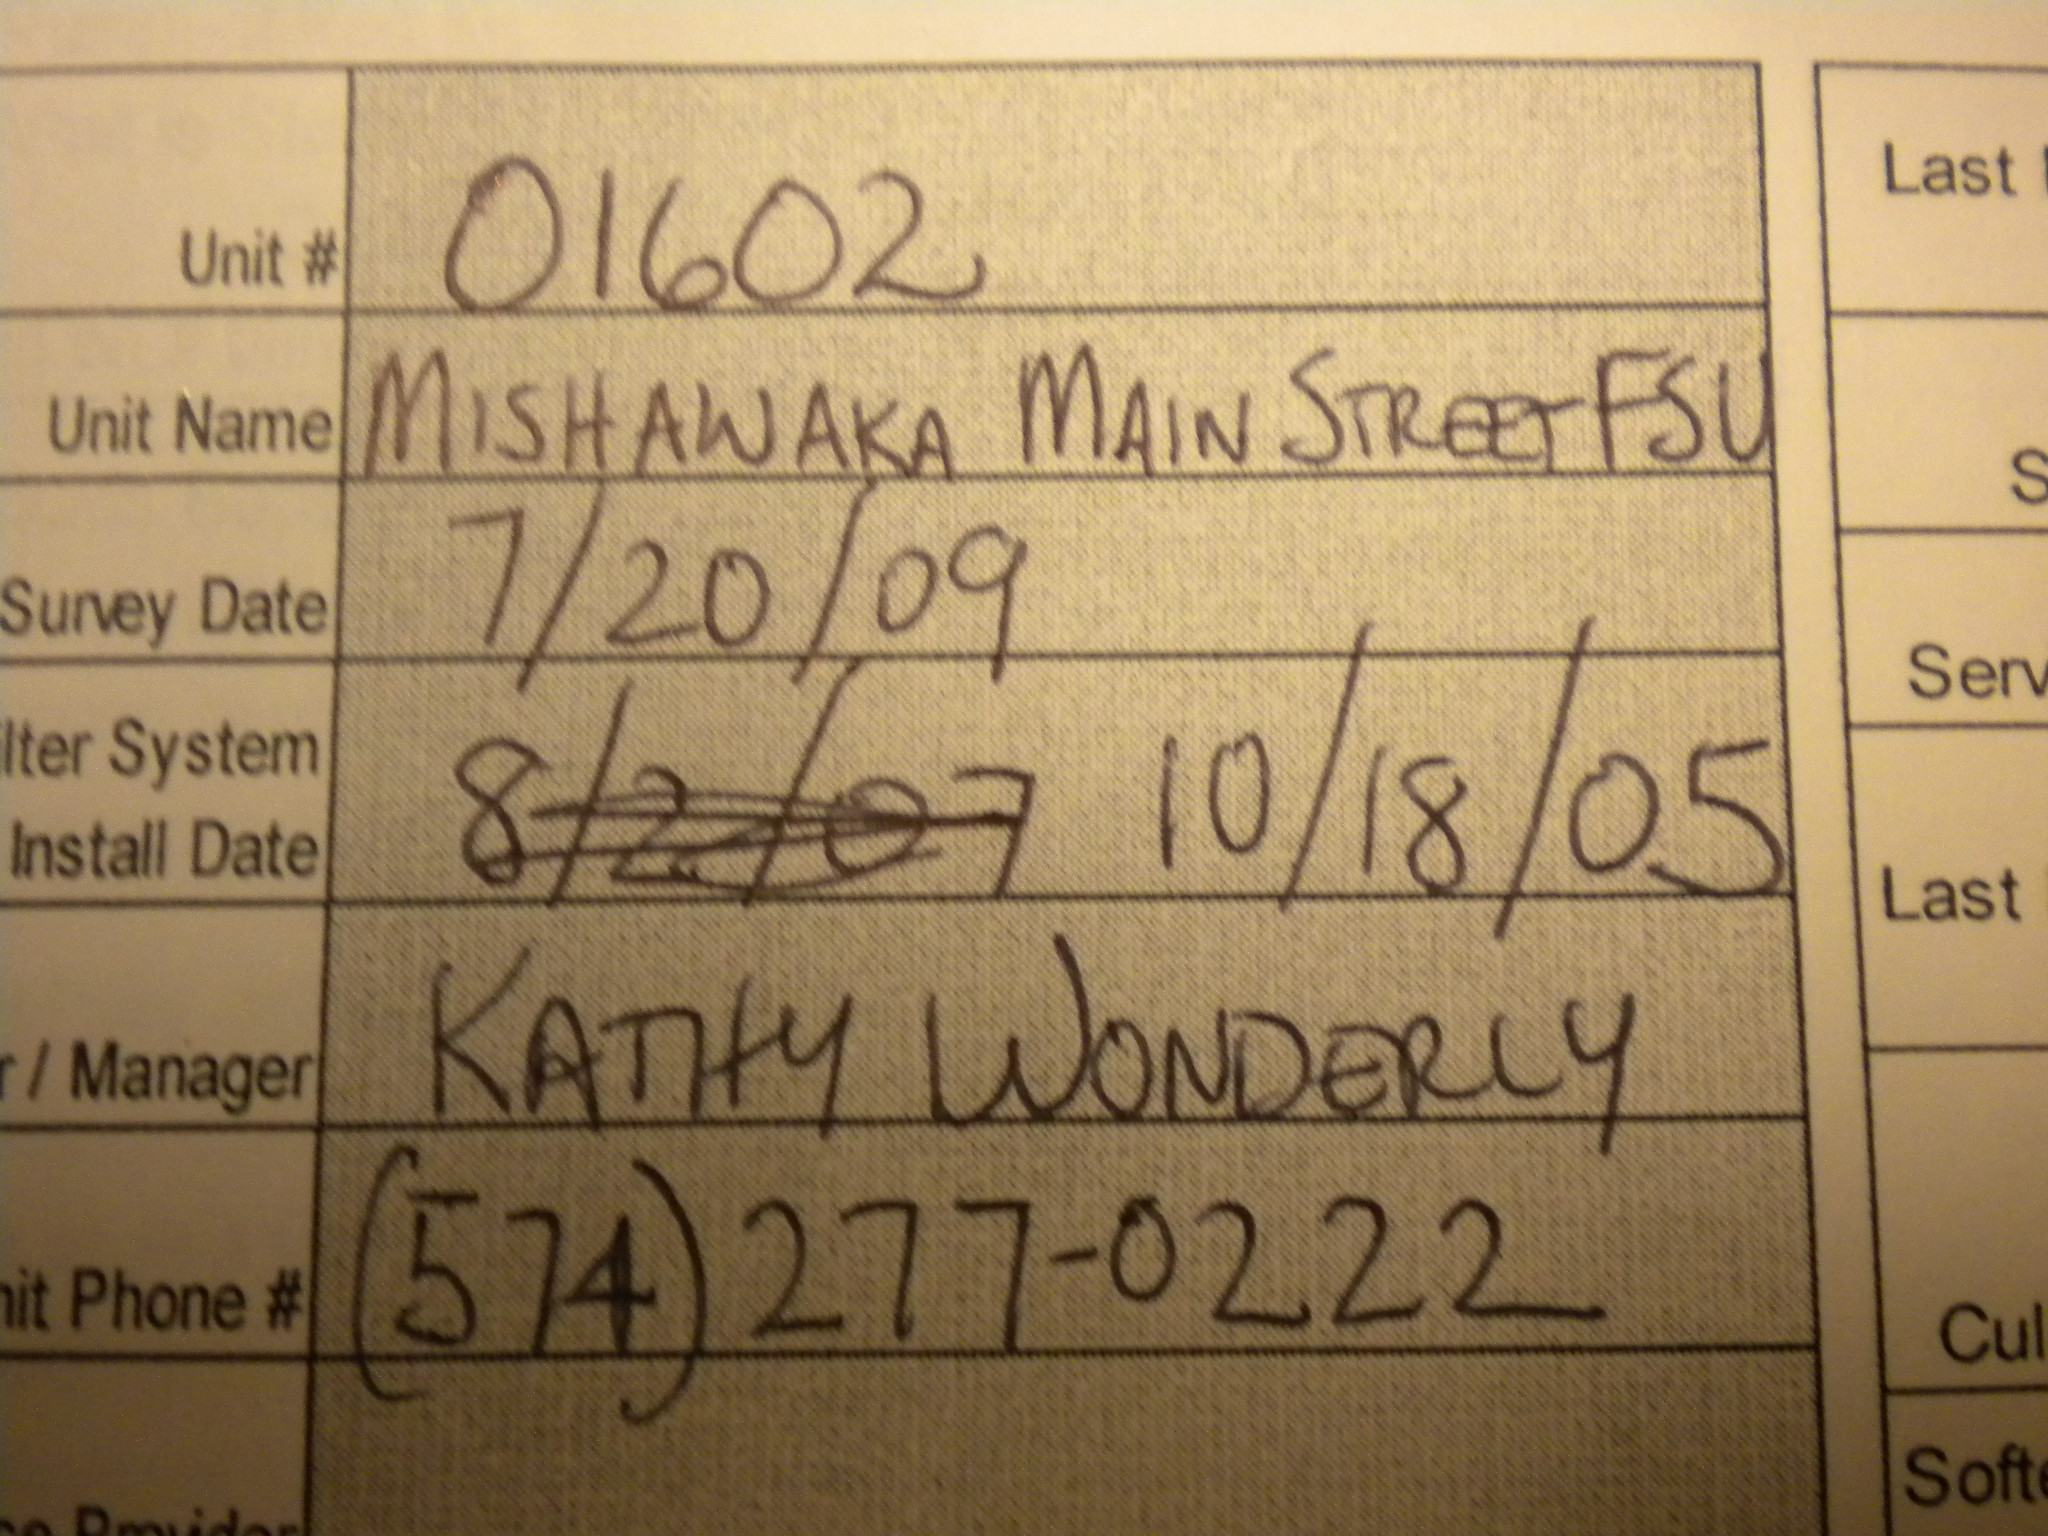 Unit # 01602
Unit Name MISHAWAKA MAIN STREET FSU
Survey Date 7/20/09
ilter System
Install Date 8/2/07 10/18/05
r / Manager KATHY WONDERLY
nit Phone # (574) 277-0222
Provider
Last
S
Serv
Last
Cul
Softe